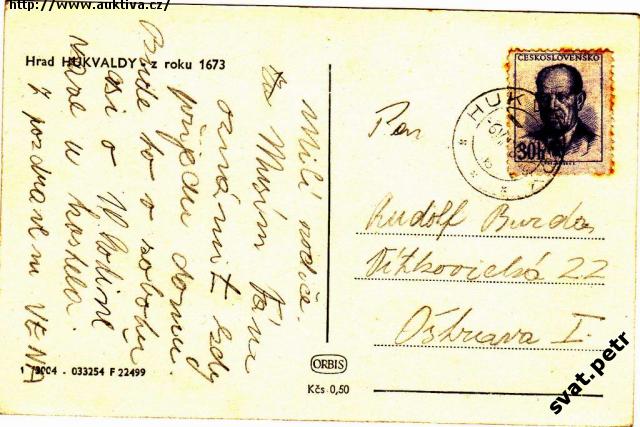 http://www.auktiva.cz/
Hrad HUKVALDY z roku 1673
Milí rodiče.
Musím Vám
oznámit kdy
přijedu domu.
Bude to v sobotu
asi o 10 hodine
u kostela.
Z pozdravem VENA
1 - 033254 F 22499
ORBIS
Kčs 0,50
ČESKOSLOVENSKO
30h
HUK
Pan
Rudolf Burda
Vítkovická 22
Ostrava I.
svat.petr